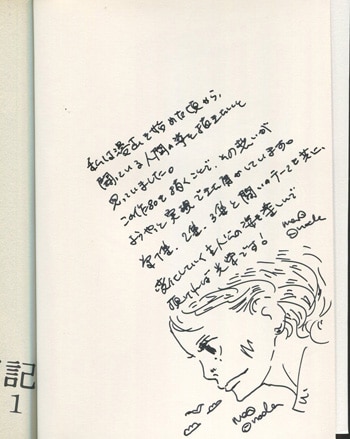 私は漫画を始めた頃から、
闘っている人間の姿を描きたいと
思っていました。
この作品を描くことで、その思いが
ようやく実現できた気がしています。
第1集、2集、3集と闘いのテーマと共に
変化していく主人公の姿を楽しんで
頂ければ光栄です!
記
1